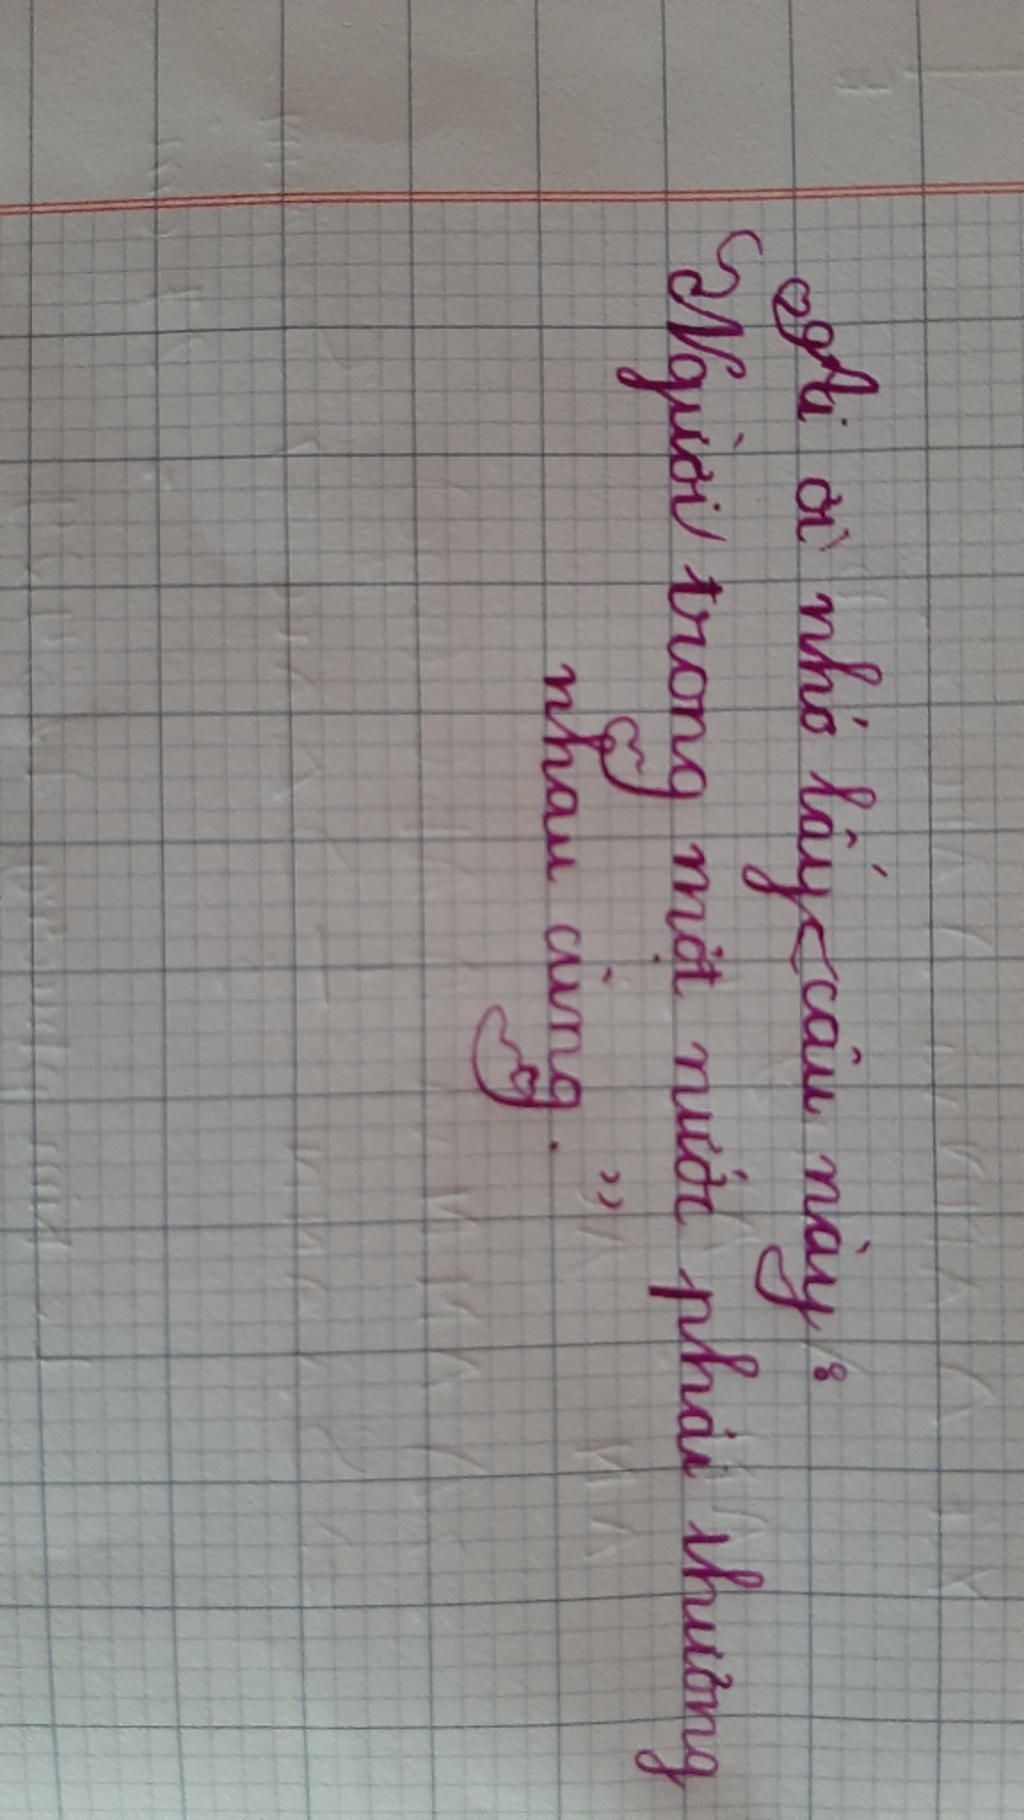 Ai ơi nhớ lấy câu này:
Người trong một nước phải thương
nhau cùng. ”